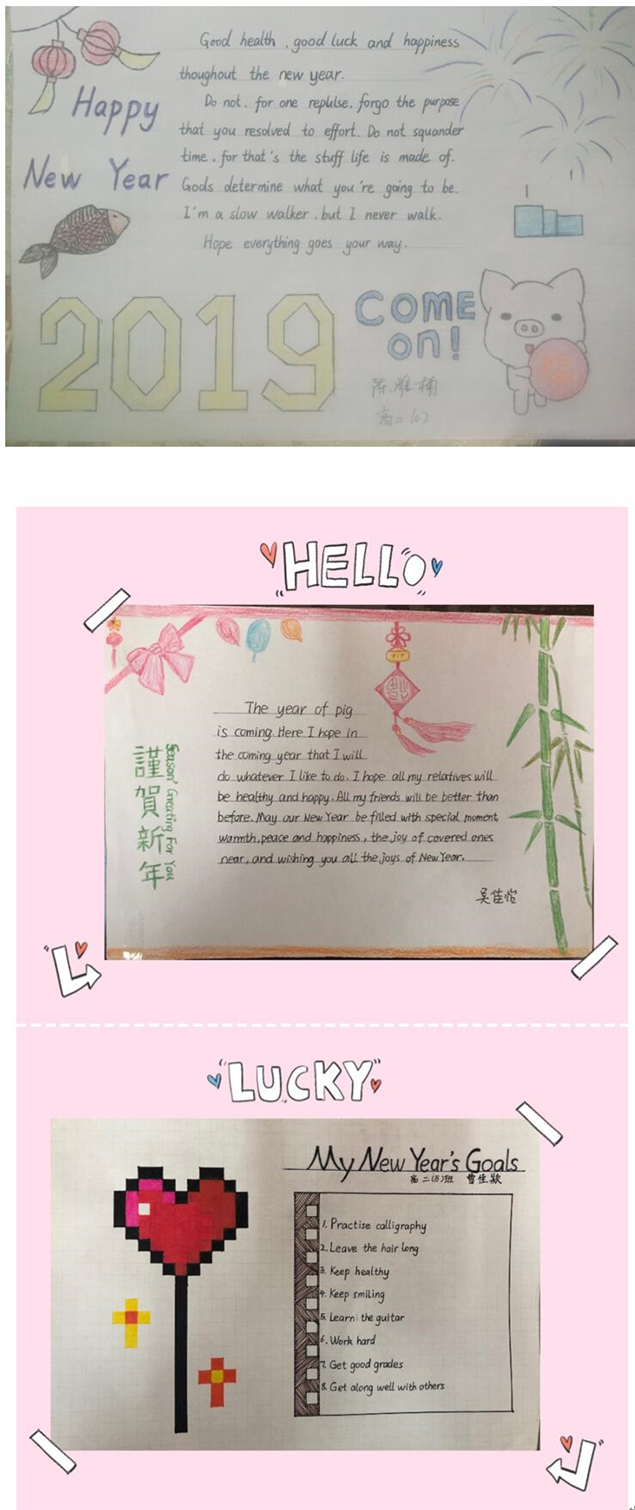 Happy
New Year
Good health, good luck and happiness
thoughout the new year.
Do not, for one replulse, forgo the purpose
that you resolved to effort. Do not squander
time, for that's the stuff life is made of.
Gods determine what you're going to be.
I'm a slow walker, but I never walk.
Hope everything goes your way.
2019
COME
on!
高二(6)
HELLO
The year of pig
is coming. Here I hope in
the coming year that I will
do whatever I like to do. I hope all my relatives will
be healthy and happy. All my friends will be better than
before. May our New Year be filled with special moment,
warmth, peace and happiness, the joy of covered ones
near, and wishing you all the joys of New Year.
謹賀新年
Season' Greeting For You
吴佳怡
LUCKY
My New Year's Goals
高二(5)班
1. Practise calligraphy
2. Leave the hair long
3. Keep healthy
4. Keep smiling
5. Learn the guitar
6. Work hard
7. Get good grades
8. Get along well with others